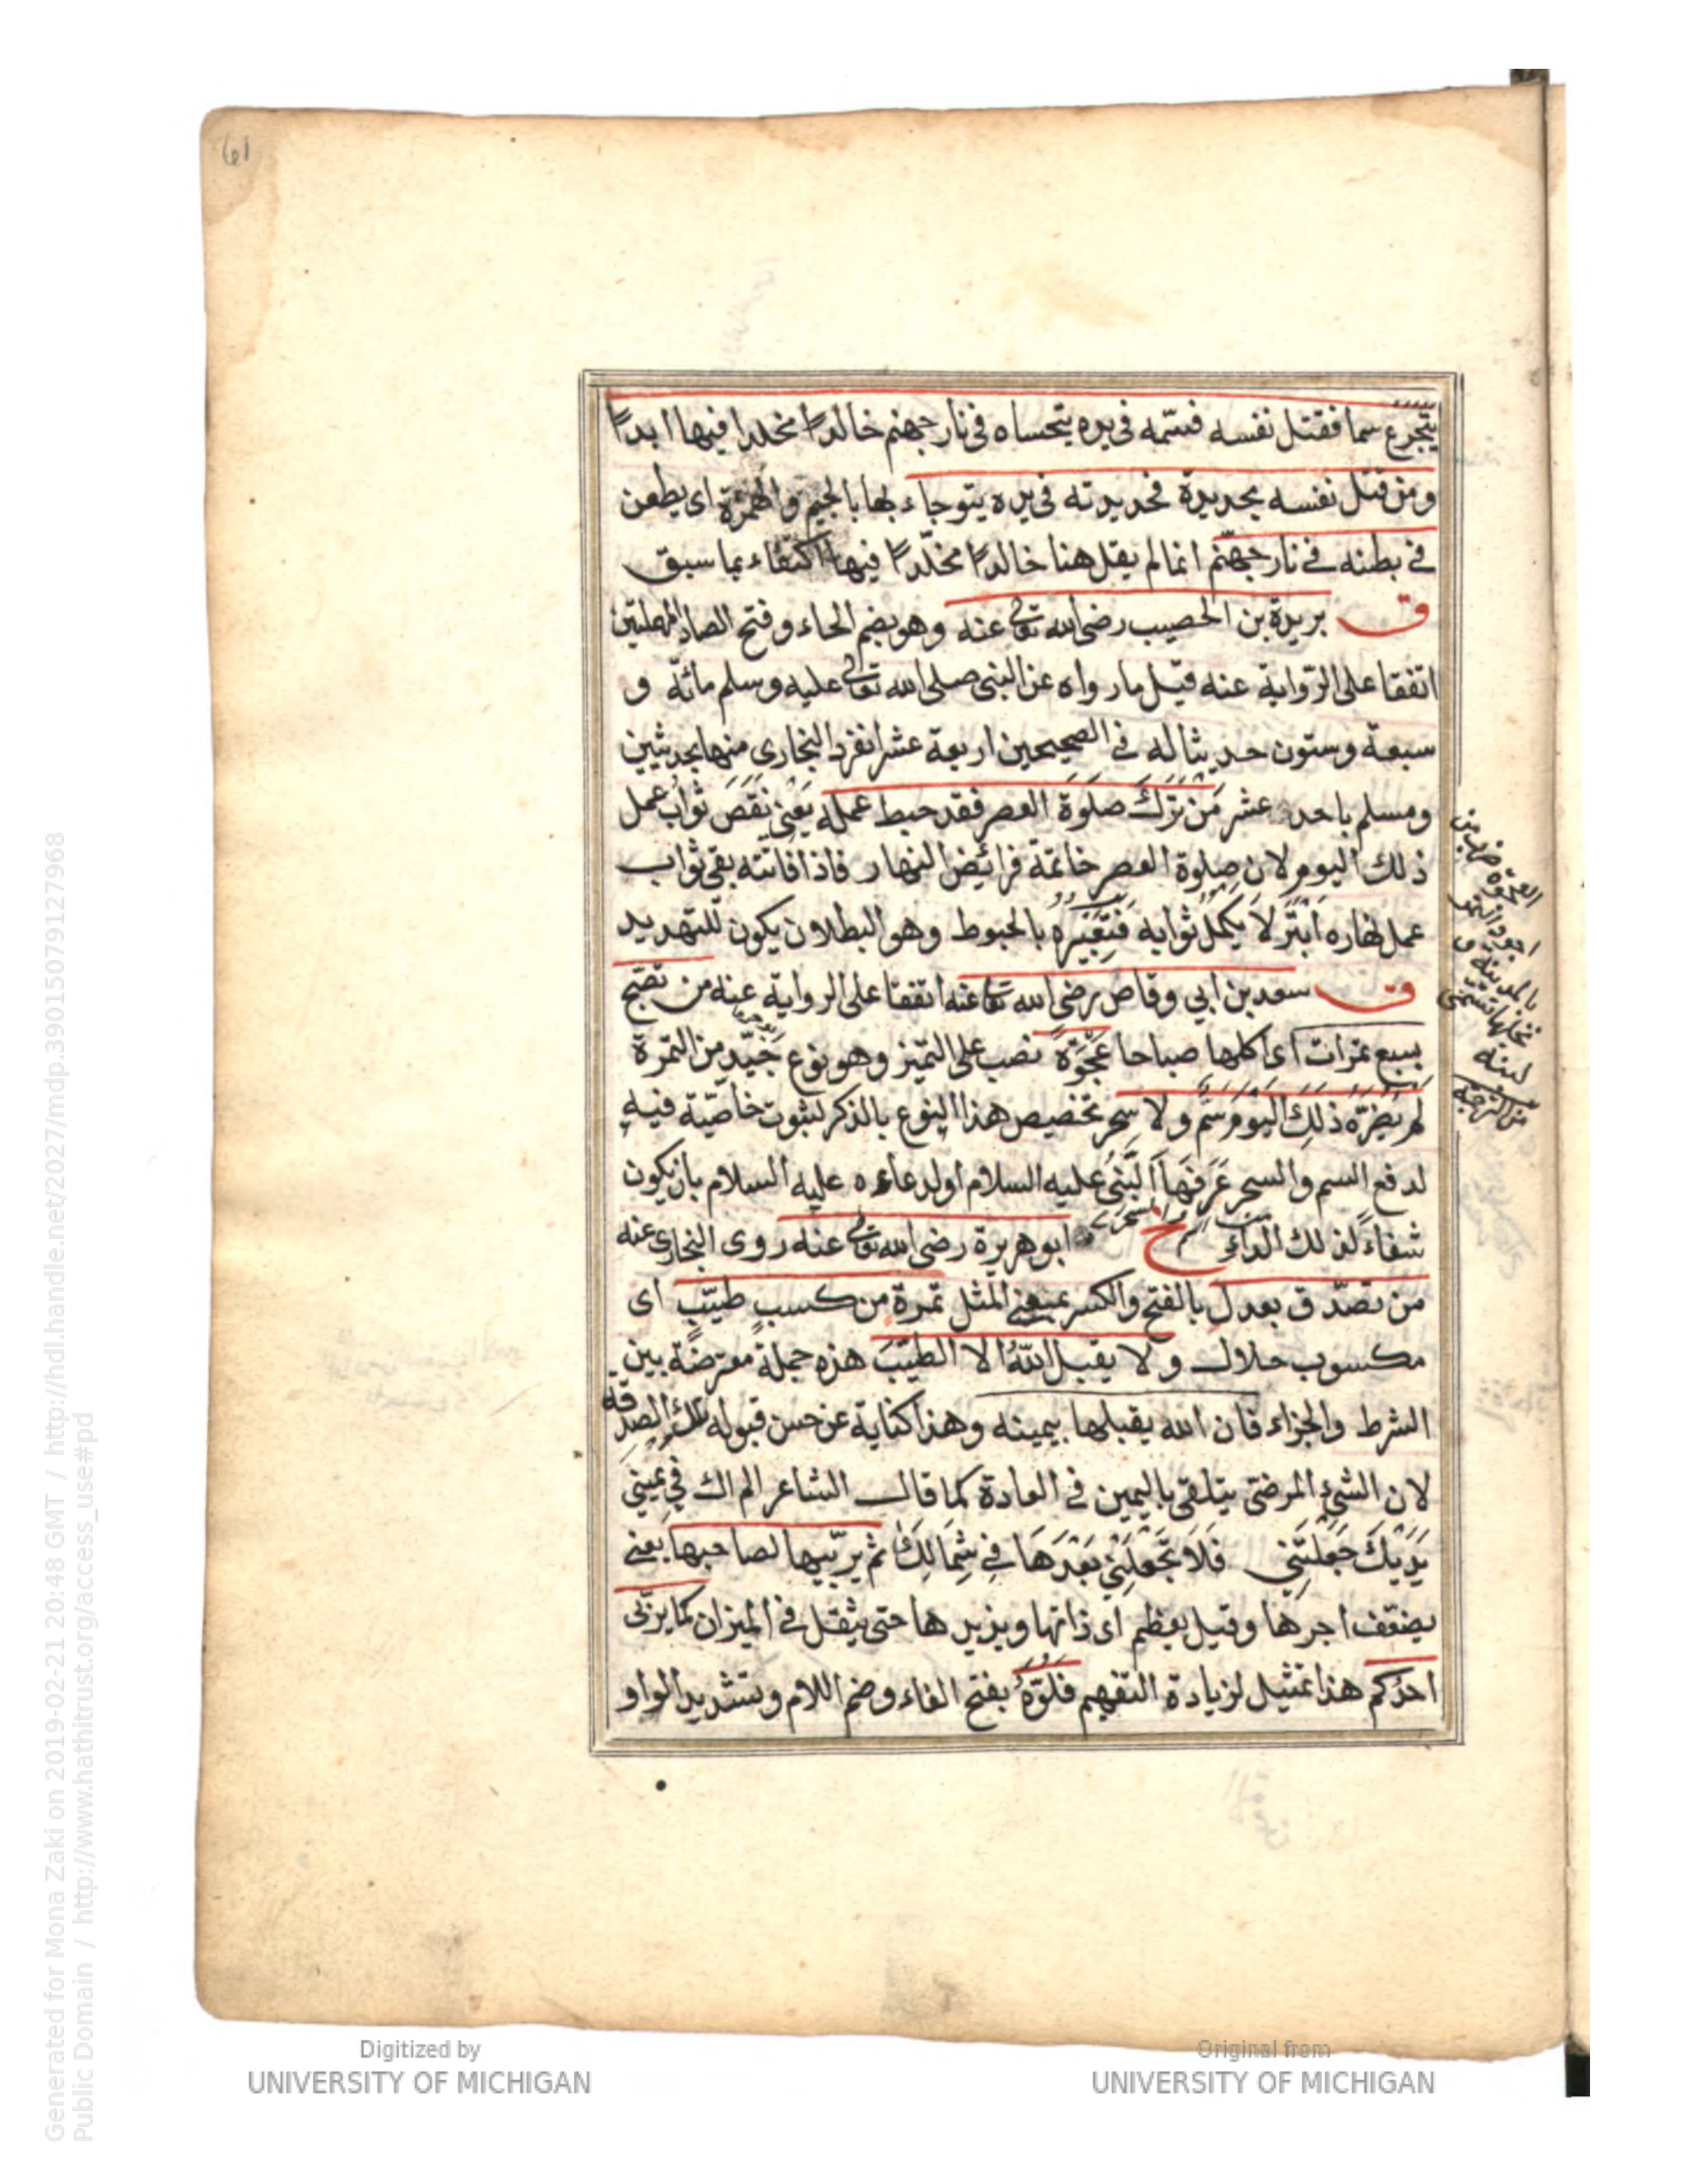 61
يتجرع سما فقتل نفسه فسمه فى يده يتحساه فى نار جهنم خالدًا مخلدا فيها ابدًا
ومن قتل نفسه بحديدة فحديدته فى يده يتوجاء بها بالجيم والهمزة اى يطعن
فى بطنه فى نار جهنم انما لم يقل هنا خالدًا مخلّدًا فيها اكتفاء بما سبق
ق بريدة بن الحصيب رضى الله تعالى عنه وهو بضم الحاء وفتح الصاد المهملتين
اتفقا على الرواية عنه قيل ما رواه عن النبى صلى الله تعالى عليه وسلم مائة و
سبعة وستون حديثا له فى الصحيحين اربعة عشر انفرد البخارى منها بحديثين
ومسلم باحد عشر مَن تَرَكَ صلَوة العصر فقد حبط عمله يَعْنِى نَقَصَ ثوابُ عمل
ذلك اليوم لان صلوة العصر خاتمة فرائض النهار فاذا فاتته بقى ثواب
عمل نهاره اَبْتَر لاَ يكمّل ثوابه فتعبيره بالحبوط وهو البطلان يكون للتهديد
ق سعد بن ابي وقاص رضى الله تعا عنه اتفقا على الرواية عنه من تصبح
بسبع تمرات اى اكلها صباحا عَجْوَةً نصب على التميز وهو نوع جَيّد من التمرة
لم يَضُرّه ذلكَ اليوم سَمّ ولا سحر تخصيص هذا النوع بالذكر لثبوت خاصّية فيه
لدفع السم والسحر عَرَفَهَا النَّبىُ عليه السلام او لدعاءه عليه السلام بان يكون
شفاءً لذلك الداء خ ابو هريرة رضى الله تعالى عنه روى البخارى عنه
من تصدّق بعدل بالفتح والكسر بمعنى المثل تمرة من كسبٍ طيّبٍ اى
مكسوب حلال ولا يقبل اللهُ الا الطيّبَ هذه جملة معترضة بين
الشرط والجزاء فان الله يقبلها بيمينه وهذا كناية عن حسن قبوله تلك الصدقة
لان الشئ المرضىّ يتلقى باليمين فى العادة كما قال الشاعر الم اك فى يمينى
يَدَيْكَ جَعَلْتَنِى فَلاَ تَجْعَلَنِّى بَعْدَهَا فِى شِمَالِكَ ثم يربّيها لصاحبها يعنى
يضعّف اجرها وقيل يعظم اى ذاتها ويزيدها حتى يثقل فى الميزان كما يربّى
احدكم هذا تمثيل لزيادة التفهيم فلوّهُ بفتح الفاء وضم اللام وتشديد الواو
العجوة ضرب من
اجود التمر
بالمدينة و
نخلها تسمى
لينة
Generated for Mona Zaki on 2019-02-21 20:48 GMT / http://hdl.handle.net/2027/mdp.39015079127968
Public Domain / http://www.hathitrust.org/access_use#pd
Digitized by
UNIVERSITY OF MICHIGAN
Original from
UNIVERSITY OF MICHIGAN